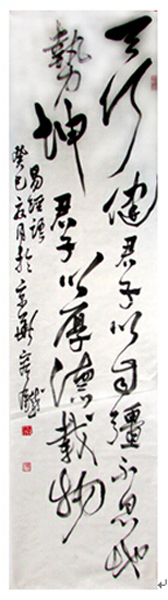 天行健君子以自彊不息地
勢坤君子以厚德載物
易經語
癸巳 月於京